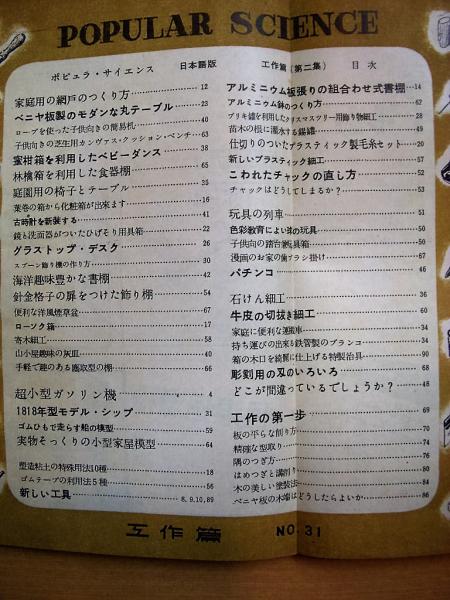 POPULAR SCIENCE
ポピュラ・サイエンス 日本語版 工作篇(第二集) 目次
家庭用の網戸のつくり方 12
ベニヤ板製のモダンな丸テーブル 23
ロープを使った子供向きの簡易机 40
子供向きの芝生用カンヴァス・クッション・ベンチ 63
蜜柑箱を利用したベビーダンス 38
林檎箱を利用した食器棚 65
庭園用の椅子とテーブル 35
葉巻の箱から化粧箱が出来ます 16
古時計を新装する 41
鏡と洗面器がついたひげそり用具箱 22
グラストップ・デスク 26
スプーン飾り棚の作り方 30
海洋趣味豊かな書棚 42
針金格子の扉をつけた飾り棚 54
便利な洋風煙草盆 67
ローソク箱 17
寄木細工 58
山小屋趣味の灰皿 40
手軽で趣のある塵取型の棚 66
超小型ガソリン機 4
1818年型モデル・シップ 31
ゴムひもで走らす船の模型 59
実物そっくりの小型家屋模型 64
塑造粘土の特殊用法10種 18
ゴムテープの利用法5種 56
新しい工具 8, 9, 10, 89
アルミニウム板張りの組合わせ式書棚 14
アルミニウム鉢のつくり方 62
ブリキ罐を利用したクリスマスツリー用飾り物細工 28
苗木の根に灌水する錫罐 49
仕切りのついたプラスティック製毛糸セット 20
新しいプラスティック細工 57
こわれたチャックの直し方 52
チャックはどうしてしまる? 53
玩具の列車 51
色彩教育によい木の玩具 50
子供向の踏台兼玩具箱 50
漫画のお家の歯ブラシ掛け 67
パチンコ 46
石けん細工 36
牛皮の切抜き細工 60
家庭に便利な運搬車 34
持ち運びの出来る鉄管製のブランコ 34
箱の木口を綺麗に仕上げる特製治具 90
彫刻用の刄のいろいろ 68
どこが間違っているでしょうか? 48
工作の第一歩 69
板の平らな削り方 70
精確な型取り 74
隅のつぎ方 76
はめつぎと溝削り 80
木の美しい塗装法 84
ベニヤ板の木端はどうしたらよいか 86
工作篇 NO.31